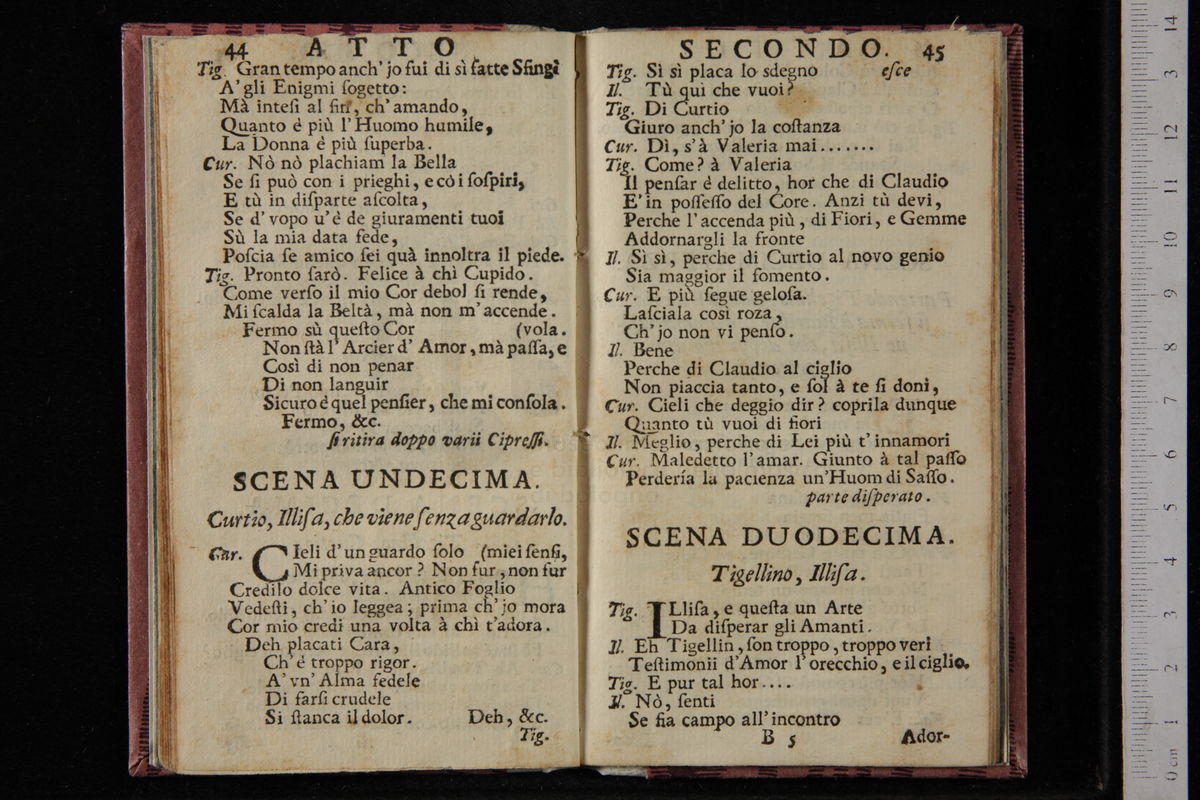 44 ATTO
Tig. Gran tempo anch' jo fui di sì fatte Sfingi
A' gli Enigmi ſogetto:
Mà inteſi al fin, ch' amando,
Quanto è più l' Huomo humile,
La Donna è più ſuperba.
Cur. Nò nò plachiam la Bella
Se ſi può con i prieghi, e cò i ſoſpiri,
E tù in diſparte aſcolta,
Se d' vopo u' è de giuramenti tuoi
Sù la mia data fede,
Poſcia ſe amico ſei quà innoltra il piede.
Tig. Pronto ſarò. Felice à chì Cupido.
Come verſo il mio Cor debol ſi rende,
Mi ſcalda la Beltà, mà non m' accende.
Fermo sù queſto Cor (vola.
Non ſtà l' Arcier d' Amor, mà paſſa, e
Così di non penar
Di non languir
Sicuro è quel penſier, che mi conſola.
Fermo, &c.
ſi ritira doppo varii Cipreſſi.
SCENA UNDECIMA.
Curtio, Illiſa, che viene ſenza guardarlo.
Cur. CIeli d' un guardo ſolo (miei ſenſi,
Mi priva ancor? Non fur, non fur
Credilo dolce vita. Antico Foglio
Vedeſti, ch' io leggea; prima ch' jo mora
Cor mio credi una volta à chì t'adora.
Deh placati Cara,
Ch' è troppo rigor.
A' vn' Alma fedele
Di farſi crudele
Si ſtanca il dolor. Deh, &c.
Tig.
SECONDO. 45
Tig. Sì sì placa lo sdegno eſce
Il. Tù quì che vuoi?
Tig. Di Curtio
Giuro anch' jo la coſtanza
Cur. Dì, s'à Valeria mai.......
Tig. Come? à Valeria
Il penſar è delitto, hor che di Claudio
E' in poſſeſſo del Core. Anzi tù devi,
Perche l' accenda più, di Fiori, e Gemme
Addornargli la fronte
Il. Sì sì, perche di Curtio al novo genio
Sia maggior il fomento.
Cur. E più ſegue geloſa.
Laſciala così roza,
Ch' jo non vi penſo.
Il. Bene
Perche di Claudio al ciglio
Non piaccia tanto, e ſol à te ſi doni,
Cur. Cieli che deggio dir? coprila dunque
Quanto tù vuoi di fiori
Il. Meglio, perche di Lei più t' innamori
Cur. Maledetto l' amar. Giunto à tal paſſo
Perdería la pacienza un' Huom di Saſſo.
parte diſperato.
SCENA DUODECIMA.
Tigellino, Illiſa.
Tig. ILliſa, e queſta un Arte
Da diſperar gli Amanti.
Il. Eh Tigellin, ſon troppo, troppo veri
Teſtimonii d' Amor l' orecchio, e il ciglio.
Tig. E pur tal hor....
Il. Nò, ſenti
Se fia campo all' incontro
B 5 Ador-
0 cm 1 2 3 4 5 6 7 8 9 10 11 12 13 14